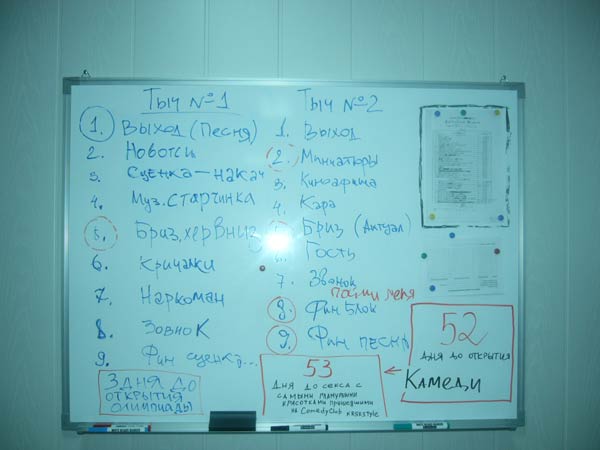 Тыч №1
1. Выход (Песня)
2. Новости
3. Сценка — накач
4. Муз. старчинка
5. Бриз, хер вниз
6. Кричалки
7. Наркоман
8. Звонок
9. Фин сценка...
3 дня до
открытия
олимпиады
Тыч №2
1. Выход
2. Миниатюры
3. Киноафиша
4. Кара
Бриз (Актуал)
Гость
7. Звонок
пойми меня
8. Фин блок
9. Фин песня
53
дня до секса с
самыми гламурными
красотками пришедшими
на ComedyClub
52
дня до открытия
Камеди